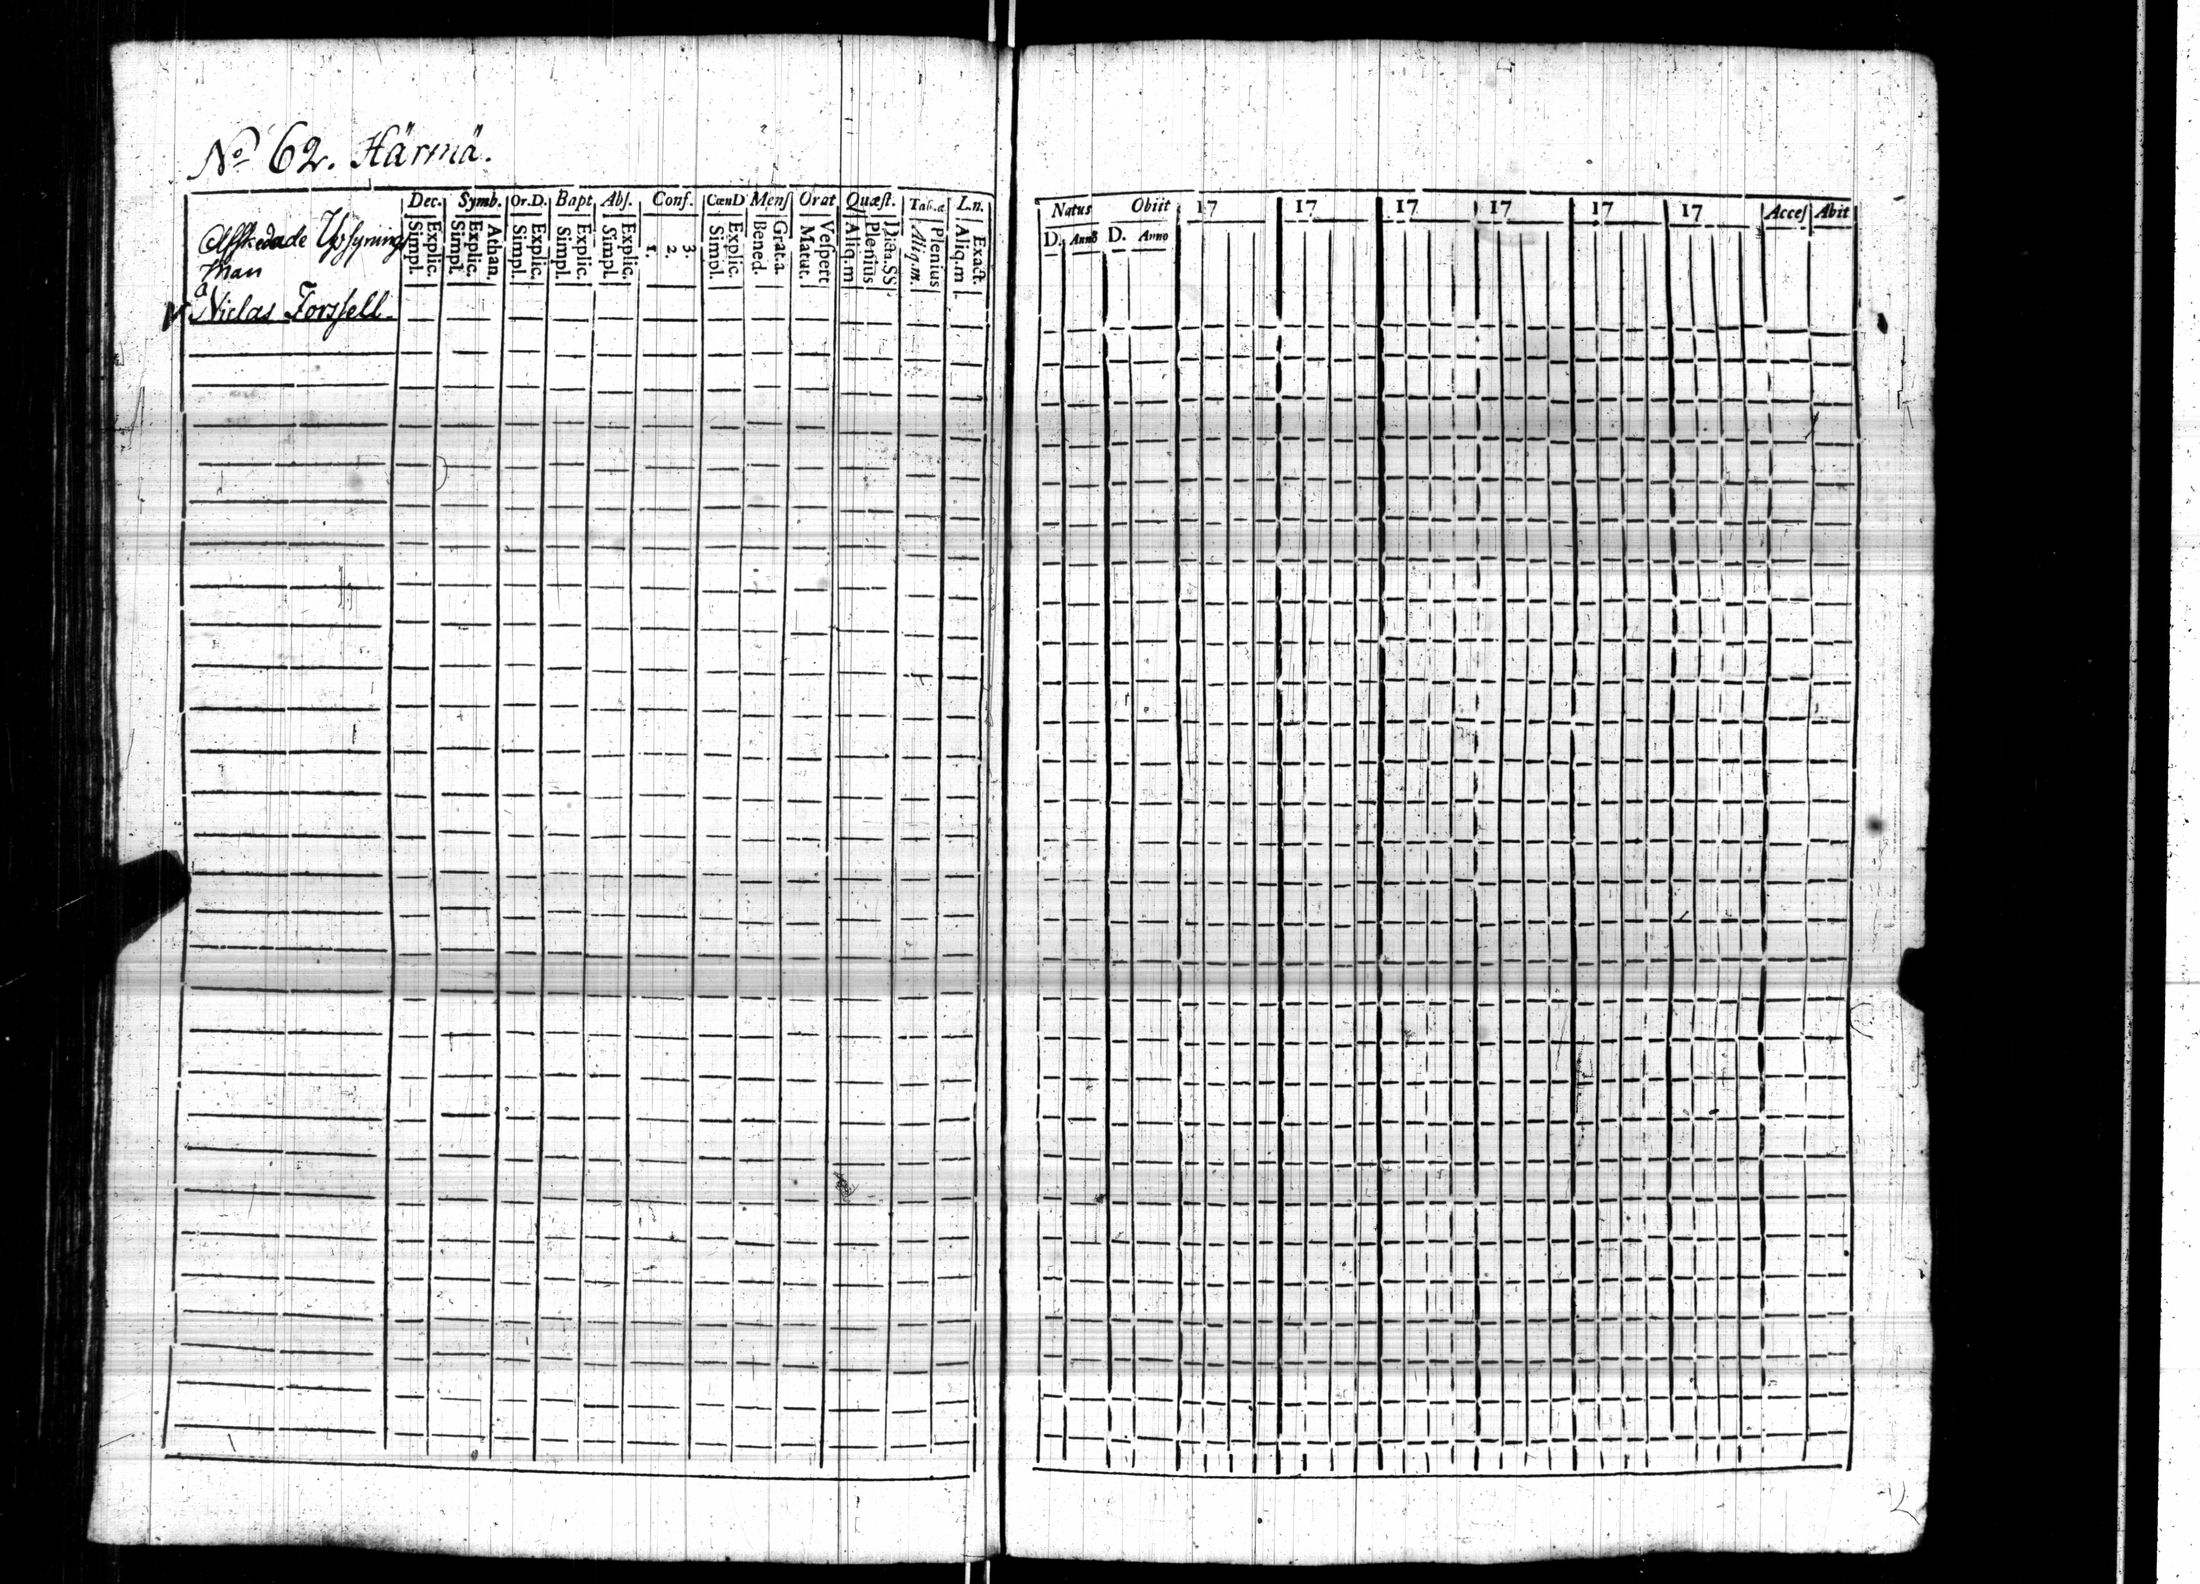 No 62. Härmä.
Dec. Symb. Or.D. Bapt Abs. Conf. CœnD Mens Orat Quæst. Tab.æ L.n.
Simpl. Explic. Simpl. Explic. Athan. Simpl. Explic. Simpl. Explic. Simpl. Explic. 1. 2. 3. Simpl. Explic. Bened. Grat.a Matut. Vespert Aliq.m Plenius Dicta.SS. Aliq.m. Plenius Aliq.m Exact.
Afskedade Upsynings
man
Niclas Forssell.
Natus Obiit 17 17 17 17 17 17 Acces Abit
D. Anno D. Anno